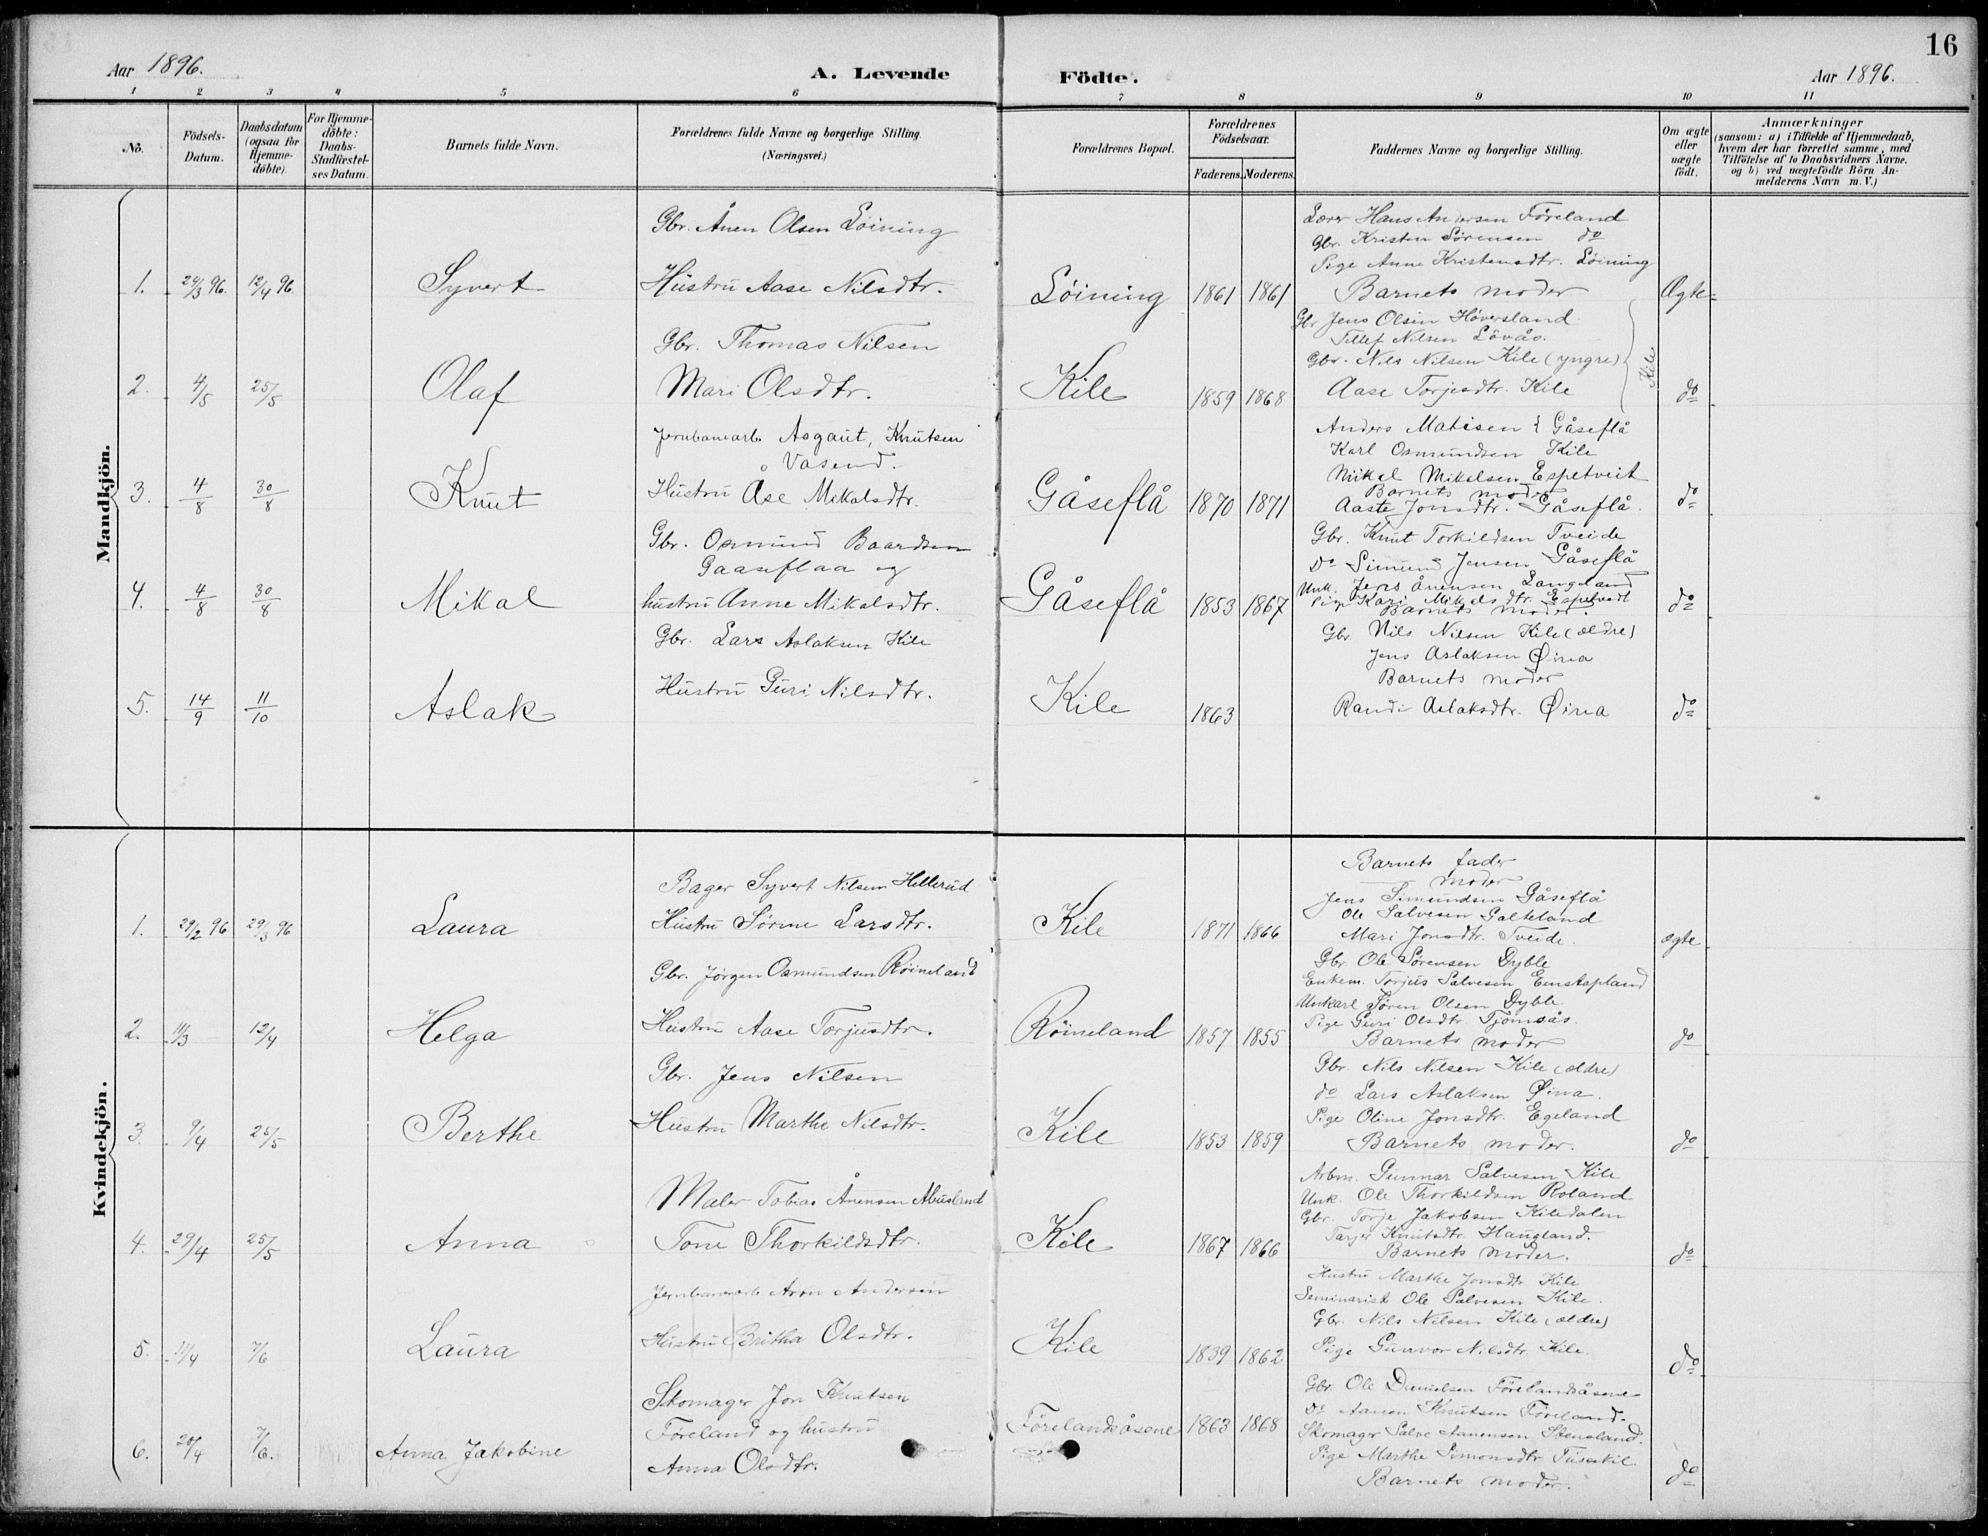 16
Aar 1896.
A. Levende Födte.
Aar 1896.
1 2 3 4 5 6 7 8 9 10 11
No.
Födsels-Datum.
Daabsdatum (ogsaa for Hjemme-döbte).
For Hjemme-döbte: Daabs-Stadfæstel-ses Datum.
Barnets fulde Navn.
Forældrenes fulde Navne og borgerlige Stilling.
(Næringsvei.)
Forældrenes Bopæl.
Forældrenes Födselsaar.
Faderens. Moderens.
Faddernes Navne og borgerlige Stilling.
Om ægte eller uægte födt.
Anmærkninger
(saasom: a) i Tilfælde af Hjemmedaab,
hvem der har forrettet samme, med
Tilföielse af to Daabsvidners Navne.
og b) ved uægtefödte Börn An-
melderens Navn m. V.)
Mandkjön.
Gbr. Ånen Olsen Löining
Lærer Hans Andersen Föreland
Gbr. Kristen Sørensen do
Pige Anne Kristensdtr. Löining
1. 24/3 96. 12/4 96 Syvert Hustru Aase Nilsdtr. Löining 1861 1861 Barnets moder Ægte
Gbr. Thomas Nilsen
Gbr Jens Olsen Höversland
Tellef Nilsen Lövås.
Gbr. Nils Nilsen Kile (yngre)
Kile
2. 4/5 25/5 Olaf Mari Olsdtr. Kile 1859 1868 Aase Torjesdtr. Kile do
Jernbanearb. Asgaut, Knutsen
Vasend.
Anders Matisen Gåseflå
Karl Osmundsen Kile
Mikkel Mikelsen Espetveit
Barnets moder
3. 4/8 30/8 Knut Hustru Åse Mikalsdtr. Gåseflå 1870 1871 Aaste Jonsdtr. Gåseflå. do
Gbr. Osmund Baardsen
Gaaseflaa og
Gbr. Knut Torkildsen Tveide
Do Simund Jensen Gåseflå
Unk. Jens Ånensen Langeland
Pige Kari Mikalsdtr. Espetvedt
4. 4/8 30/8 Mikal hustru Anne Mikalsdtr. Gåseflå 1853 1867 Barnets moder. do
Gbr. Lars Aslaksen Kile
Gbr Nils Nilsen Kile (ældre)
Jens Aslaksen Øina
Barnets moder
5. 14/9 11/10 Aslak Hustru Guri Nilsdtr. Kile 1863 Randi Aslaksdtr. Øina do
Kvindekjön.
Bager Syvert Nilsen Hellerud
Barnets fader
moder
Jens Simundsen Gåseflå
Ole Salvesen Galteland
1. 29/2 96 29/3 96 Laura Hustru Sörine Larsdtr. Kile 1871 1866 Mari Jonsdtr. Tveide. ægte
Gbr. Jørgen Osmundsen Röineland
Gbr. Ole Sørensen Dyble
Enkem. Torjus Salvesen Einstapland
Unkarl Sören Olsen Dyble
Pige Guri Olsdtr. Tjömsås
2. 11/3 12/4 Helga Hustru Aase Torjusdtr. Röineland 1857 1855 Barnets moder do
Gbr. Jens Nilsen
Gbr. Nils Nilsen Kile (ældre)
do Lars Aslaksen Øina.
Pige Oline Jonsdtr. Egeland
3. 9/4 25/5 Berthe Hustru Marthe Nilsdtr. Kile 1853 1859 Barnets moder. do
Maler Tobias Ånensen Abusland
Arbm. Gunnar Salvesen Kile
Unk. Ole Thorkildsen Roland
Gbr. Torje Jakobsen Kiledalen
Knutsdtr. Haugland.
4. 29/4 25/5 Anna Tone Thorkildsdtr. Kile 1867 1866 Barnets moder. do
Jernbanearb. Aron Andersen
Hustru Marthe Jonsdtr. Kile
Seminarist Ole Salvesen Kile.
Gbr. Nils Nilsen Kile (ældre)
5. 7/6 Laura Hustru Britha Olsdtr. Kile 1839 1862 Pige Gunvor Nilsdtr. Kile. do
Skomager Jon Knutsen
Föreland og hustru
Gbr. Ole Danielsen Förelandsåsene
Do Aanen Knutsen Föreland.
Skomager Salve Aanensen Stensland.
Pige Marthe Simonsdtr
6. 20/4 7/6. Anna Jakobine Anna Olsdtr. Förelandsåsene 1863 1868 Barnets moder. do